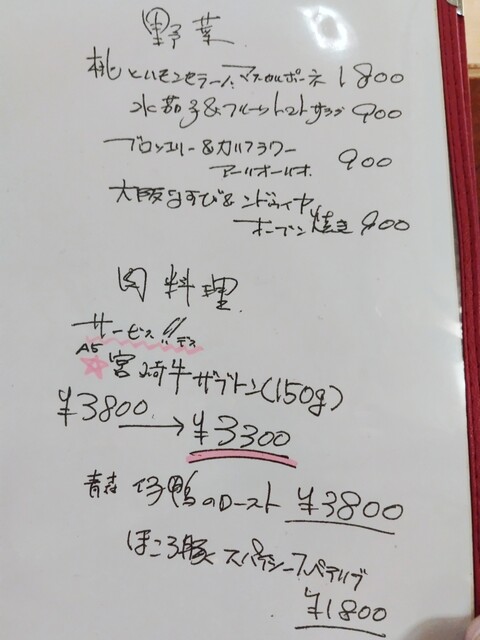 野菜
桃といちじくモッツァレラ、マスカルポーネ 1800
水茄子&フルーツトマトサラダ 900
ブロッコリー&カリフラワー
アーリオオーリオ 900
大阪なすび&ンドゥイヤ
オーブン焼き 900
肉料理
サービスデス
A5
宮崎牛ザブトン(150g)
¥3800 → ¥3300
青森 鴨のロースト ¥3800
ほころ豚 スパイシースペアリブ
¥1800